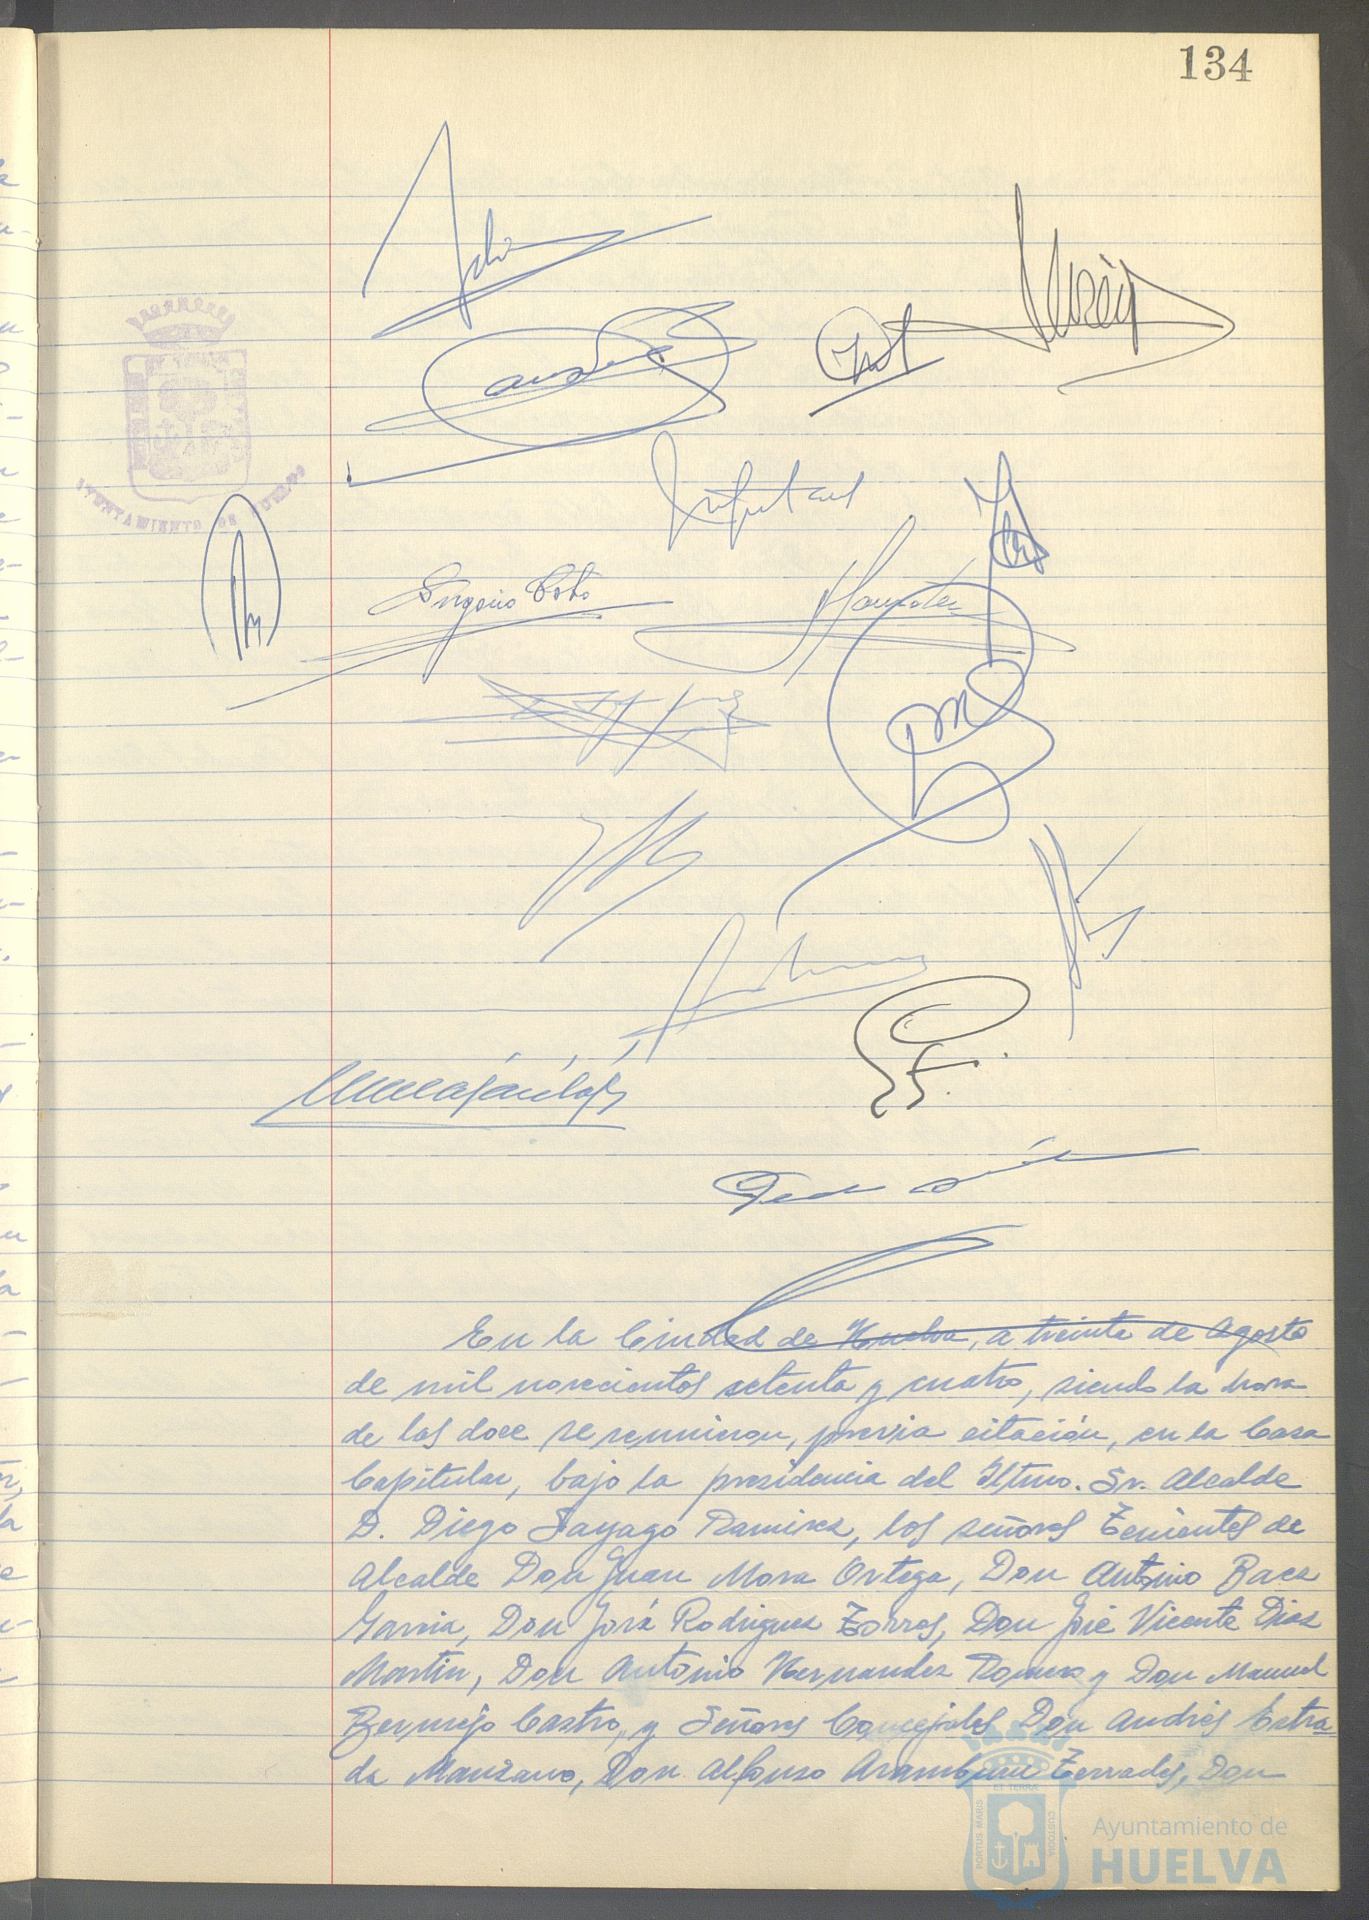 134
AYUNTAMIENTO DE HUELVA
Eugenio Coto
En la Ciudad de Huelva, a treinta de Agosto
de mil novecientos setenta y cuatro, siendo la hora
de las doce se reunieron, previa citación, en la Casa
Capitular, bajo la presidencia del Iltmo. Sr. Alcalde
D. Diego Sayago Ramirez, los señores Tenientes de
Alcalde Don Juan Mora Ortega, Don Antonio Baez
Garcia, Don José Rodriguez Torres, Don José Vicente Diaz
Martin, Don Antonio Hernandez Romero y Don Manuel
Bermejo Castro, y Señores Concejales Don Andrés Estra=
da Manzano, Don Alfonso Aramburu Terrades, Don
PORTUS MARIS ET TERRAE CUSTODIA
Ayuntamiento de
HUELVA